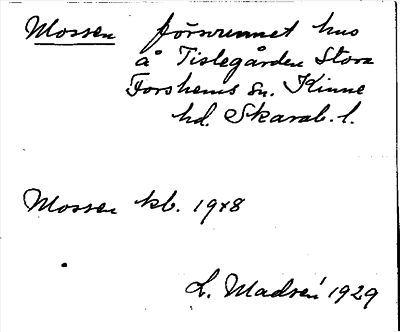 Mossen försvunnet hus
å Tislegården Stora
Forshems sn. Kinne
hd. Skarab. l.
Mossen kb. 1948
L. Madsén 1929